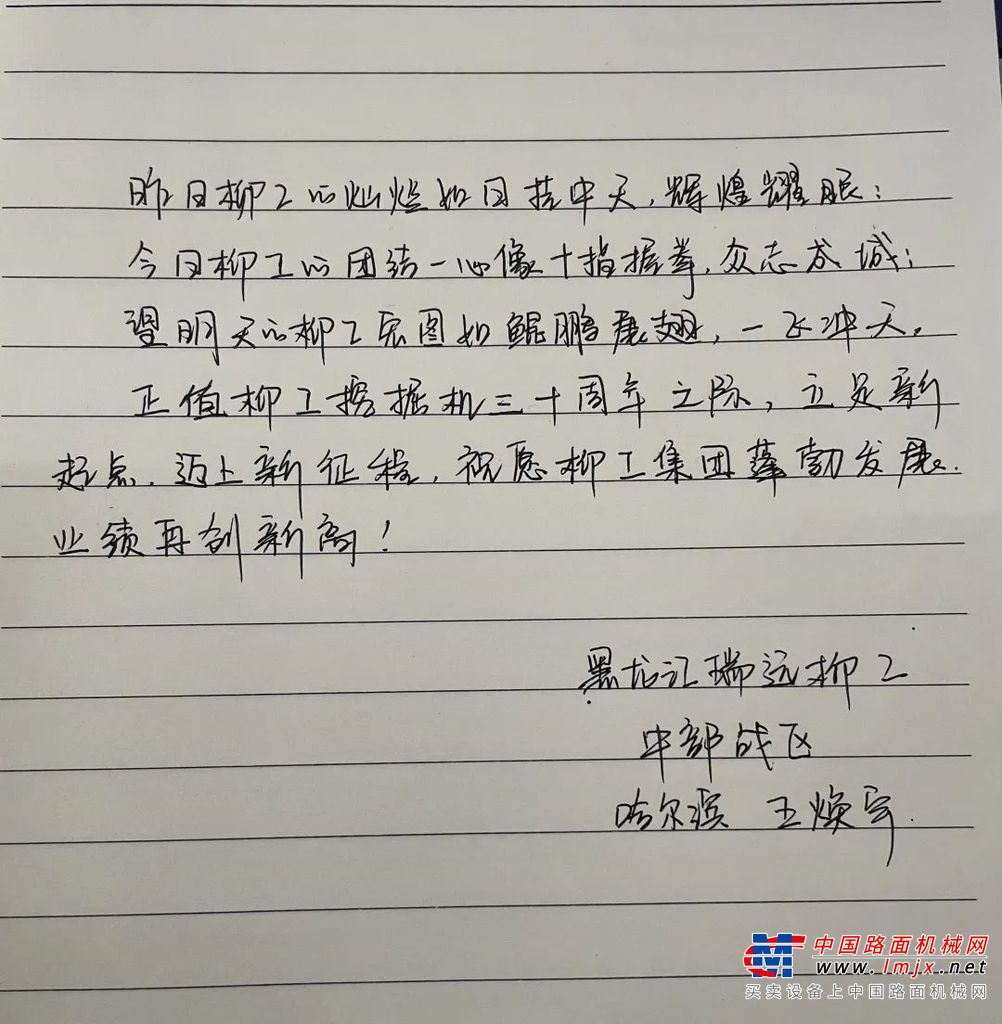 昨日柳工的灿烂如日挂中天，辉煌耀眼；
今日柳工的团结一心像十指握拳，众志成城；
望明天的柳工宏图如鲲鹏展翅，一飞冲天。
正值柳工挖掘机三十周年之际，立足新
起点，迈上新征程，祝愿柳工集团蓬勃发展，
业绩再创新高！
黑龙江瑞远柳工
中部战区
哈尔滨 王焕宇
中国路面机械网
www.lmjx.net
买卖设备上中国路面机械网